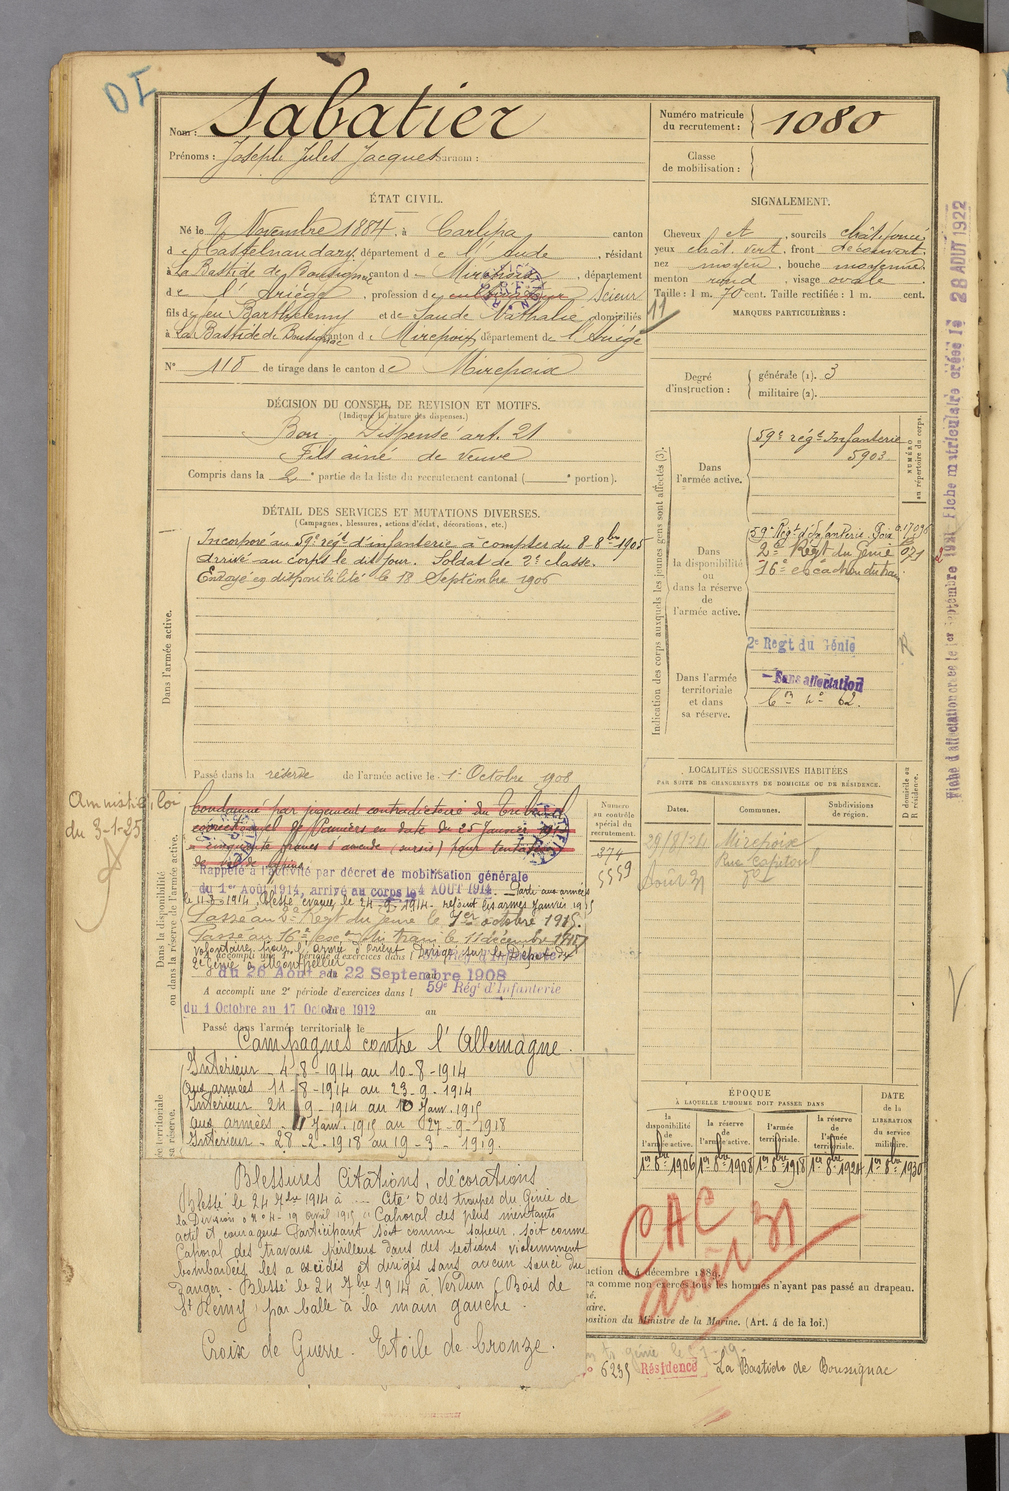 Nom : Sabatier
Prénoms : Joseph Jules Jacques Surnom :
Numéro matricule
du recrutement : 1080
Classe
de mobilisation :
ÉTAT CIVIL.
Né le 9 Novembre 1884, à Carlipa canton
de Castelnaudary, département de l'Aude, résidant
à La Bastide de Bousignac canton de Mirepoix, département
de l'Ariège, profession de cultivateur Scieur
fils de feu Barthélemy et de Saude Nathalie, domiciliés
à La Bastide de Bousignac canton de Mirepoix département de l'Ariège
N° 118 de tirage dans le canton de Mirepoix
SIGNALEMENT.
Cheveux et , sourcils chât. foncé
yeux chât. vert, front découvert
nez moyen, bouche moyenne
menton rond, visage ovale
Taille : 1 m. 70 cent. Taille rectifiée : 1 m. cent.
11
MARQUES PARTICULIÈRES :
Degré
d'instruction :
générale (1). 3
militaire (2).
DÉCISION DU CONSEIL DE REVISION ET MOTIFS.
(Indiquer la nature des dispenses.)
Bon Dispensé art. 21
Fils aîné de veuve
Compris dans la 2e partie de la liste du recrutement cantonal ( e portion).
DÉTAIL DES SERVICES ET MUTATIONS DIVERSES.
(Campagnes, blessures, actions d'éclat, décorations, etc.)
Dans l'armée active.
Incorporé au 59e régt d'infanterie à compter du 8 8bre 1905
Arrivé au corps le dit jour. Soldat de 2e classe.
Envoyé en disponibilité le 18 Septembre 1906
Passé dans la réserve de l'armée active le 1er Octobre 1908
Indication des corps auxquels les jeunes gens sont affectés (3).
NUMÉRO
au répertoire du corps.
Dans
l'armée active.
59e régt Infanterie
5903
Dans
la disponibilité
ou
dans la réserve
de
l'armée active.
59e Régt d'Infanterie Foix
2e Régt du Génie 071
16e escadron du train
2e Regt du Génie
Dans l'armée
territoriale
et dans
sa réserve.
Sans affectation
Con n° 62.
Fiche d'affectation créée le 1er Septembre 1921 Fiche matriculaire créée le 28 AOUT 1922
Amnistié, loi
du 3-1-25
Dans la disponibilité
ou dans la réserve de l'armée active.
Condamné par jugement contradictoire du Tribunal
correctionnel de Pamiers en date du 25 Janvier
à cinquante francs d'amende (sursis) pour tentative
Numéro
au contrôle
spécial du
recrutement.
374
5559
Rappelé à l'activité par décret de mobilisation générale
du 1er Août 1914, arrivé au corps le 4 AOUT 1914. Parti aux armées
le 11-8-1914, blessé évacué le 24-9-1914. rejoint les armées Janvier 1915
Passé au 2e Régt du génie le 1er octobre 1915.
Passé au 16e Escon du train le 11 décembre 1917
volontaire pour l'armée d'Orient Dirigé sur le Dépôt du
2e Génie à Montpellier
A accompli une 1re période d'exercices dans l
du 26 Août au 22 Septembre 1908
A accompli une 2e période d'exercices dans l 59e Régt d'Infanterie
du 1 Octobre au 17 Octobre 1912 au
Passé dans l'armée territoriale le
Campagnes contre l'Allemagne.
Intérieur - 4-8-1914 au 10-8-1914
aux armées 11-8-1914 au 23-9-1914
Intérieur 24-9-1914 au 10 Janv. 1915
aux armées - 11 Janv. 1915 au 27-2-1918
Intérieur - 28-2-1918 au 19-3-1919.
Blessures Citations, décorations
Blessé le 24 7bre 1914 à ... Cité O des troupes du Génie de
la Division O n° 4 - 19 avril 1915 "Caporal des plus méritants
actif et courageux Participant soit comme sapeur, soit comme
Caporal des travaux périlleux dans des sections violemment
bombardées, les a exécutés et dirigés sans aucun souci du
danger - Blessé le 24 7bre 1914 à Verdun (Bois de
St Rémy) par balle à la main gauche.
Croix de Guerre. Etoile de bronze.
LOCALITÉS SUCCESSIVES HABITÉES
PAR SUITE DE CHANGEMENTS DE DOMICILE OU DE RÉSIDENCE.
Dates. Communes. Subdivisions
de région.
D domicile ou
R résidence.
Mirepoix
Rue Capitoul
Août 31 do
ÉPOQUE
À LAQUELLE L'HOMME DOIT PASSER DANS
la
disponibilité
de
l'armée active.
la
réserve
de
l'armée active.
l'armée
territoriale.
la réserve
de
l'armée
territoriale.
DATE
de la
LIBÉRATION
du service
militaire.
1er 8bre 1906 1er 8bre 1908 1er 8bre 1918 1er 8bre 1924 1er 8bre 1930
CAC
août 31
uction du 4 décembre 1889.
ra comme non exercés tous les hommes n'ayant pas passé au drapeau.
position du Ministre de la Marine. (Art. 4 de la loi.)
6235 Résidence La Bastide de Boussignac